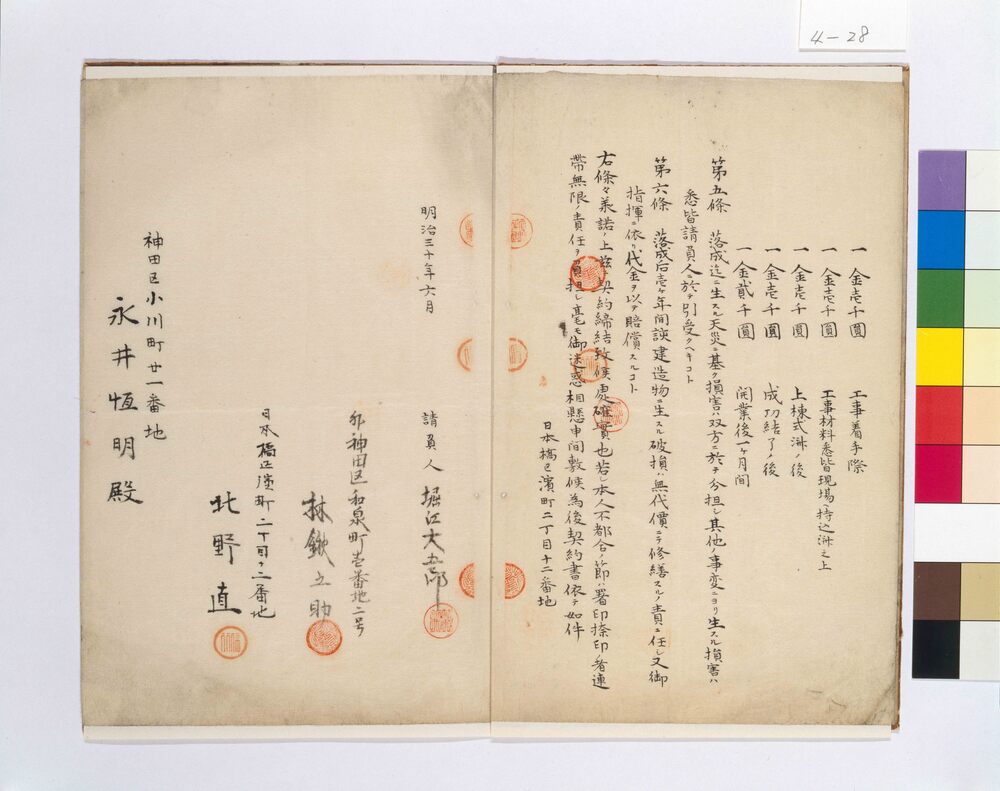 4-28
一金壱千圓 工事着手際
一金壱千圓 工事材料悉皆現場ヘ持込済之上
一金壱千圓 上棟式済ノ後
一金壱千圓 成功結了ノ後
一金貳千圓 開業後一ヶ月間
第五條 落成迄ニ生スル天災ニ基ク損害ハ双方ニ於テ分担シ其他ノ事変ニヨリ生スル損害ハ
悉皆請負人ニ於テ引受クヘキコト
第六條 落成后壱ヶ年間該建造物ニ生スル破損ハ無代價ニテ修繕スルノ責ニ任シ又御
指揮ニ依リ代金ヲ以テ賠償スルコト
右條々承諾ノ上茲ニ契約締結致候處確實也若シ本人不都合ノ節ハ署印捺印ノ者連
帯無限ノ責任ヲ負担シ毫モ御迷惑相懸申間敷候為後契約書依テ如件
日本橋区濱町二丁目十二番地
明治三十年六月
請負人 堀江大五郎
神田区和泉町壱番地二号
林鍬五助
日本橋区濱町二丁目十二番地
北野直
神田区小川町廿一番地
永井恆明殿